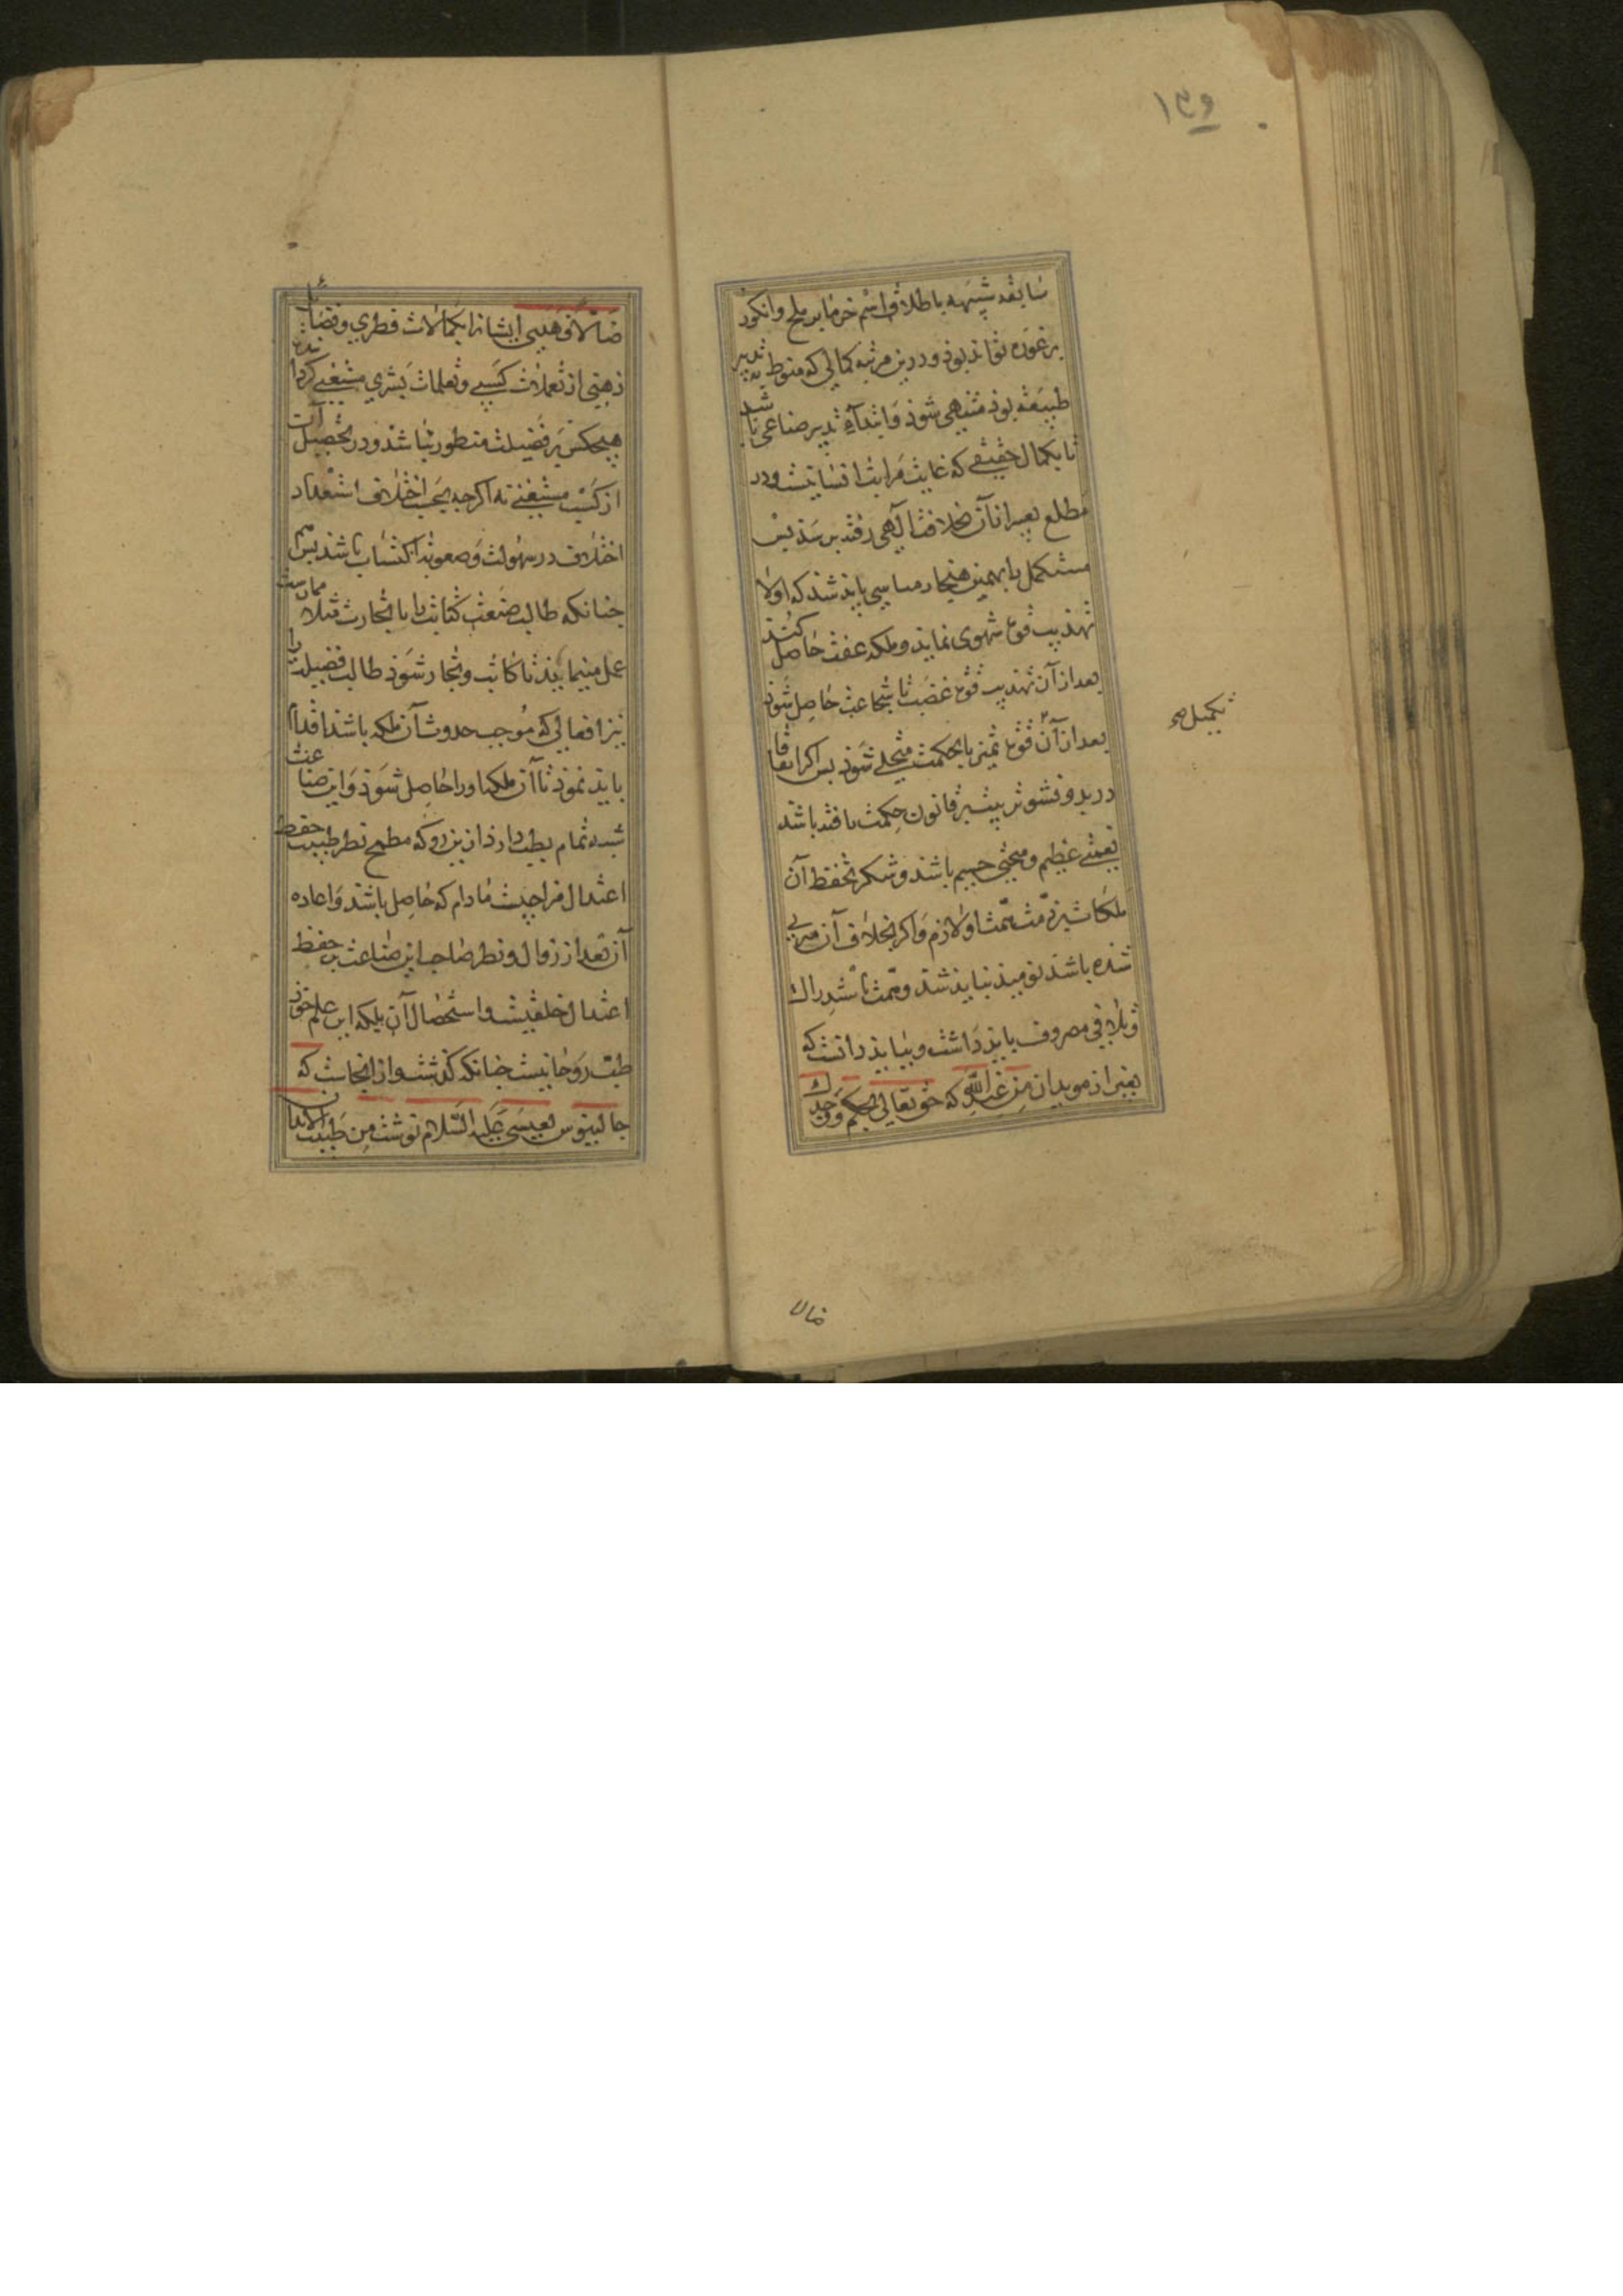 ۱۳۶
سابقه شبیه باطلاق اسم خرما بر بلح و انکور
بر غوره تواند بوذ و درین مرتبه کمالی که منوط بتدبیر
طبیعه بوذ منتهی شوذ و ابتداء تدبیر صناعی باشد
تا بکمال حقیقی که غایت مراتب انسانیست و در
مطلع بعبیر از آن بخلافت الهی رفته برسذ پس
مستکمل با بهمین هنجار می بایذ شذ که اولا
تهذیب قوة شهوی نمایذ و ملکه عفت حاصل کنذ
بعد از آن تهذیب قوة غضب تا شجاعت حاصل شوذ
بعد از آن قوة تمیز تا بحکمت متحلی شوذ پس اکر اتفاقا
در بدو نشو تربیت بر قانون حکمت یافته باشد
نعمتی عظیم و منحتی جسیم باشذ و شکر بحفظ آن
ملکات بر ذمت همت او لازم و اکر بخلاف آن مربی
شده باشذ نومیذ نبایذ شذ و همت باستدراک
و تلافی مصروف بایذ داشت و ببایذ دانست که
بغیر از مویدان من عند الله که حق تعالی بحکم ووجدک
تکمیل صح
ضالا
ضالا فهدی ایشانرا بکمالات فطری و فضائل
ذهنی از تعملات کسبی و تعلمات بشری مستغنی کردانیده
هیچکس بر فضیلت مفطور نباشذ و در تحصیل آن
از کسب مستغنی نه اکرچه بحسب اختلاف استعداد
اختلاف در سهولت و صعوبت اکتساب باشد پس
چنانکه طالب صنعت کتابت یا تجارت مثلا ممارست
عمل مینمایذ تا کاتب و نجار شوذ طالب فضیلت را
نیز افعالی که موجب حدوث آن ملکه باشذ اقدام
بایذ نموذ تا آن ملکه اورا حاصل شوذ و این صناعت
شبه تمام بطب دارذ ازین رو که مطمح نظر طبیب حفظ
اعتدال مزاجیست مادام که حاصل باشذ و اعاده
آن بعد از زوال و نظر صاحب این صناعت بر حفظ
اعتدال خلقیست و استحصال آن بلکه این علم خوذ
طب روحانیست چنانکه کذشت و از اینجاست که
جالینوس بعیسی علیه السلام نوشت من طبیب الابدان